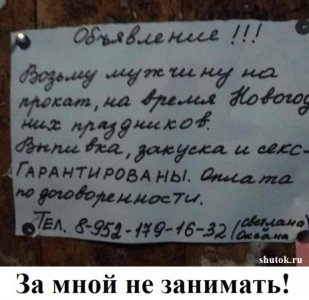 Объявление !!!
Возьму мужчину на
прокат, на время Новогод
них праздников.
Выпивка, закуска и секс-
ГАРАНТИРОВАНЫ. Оплата
по договоренности.
ТЕЛ. 8-952-179-16-32 (светлана
Оксана
shutok.ru
За мной не занимать!